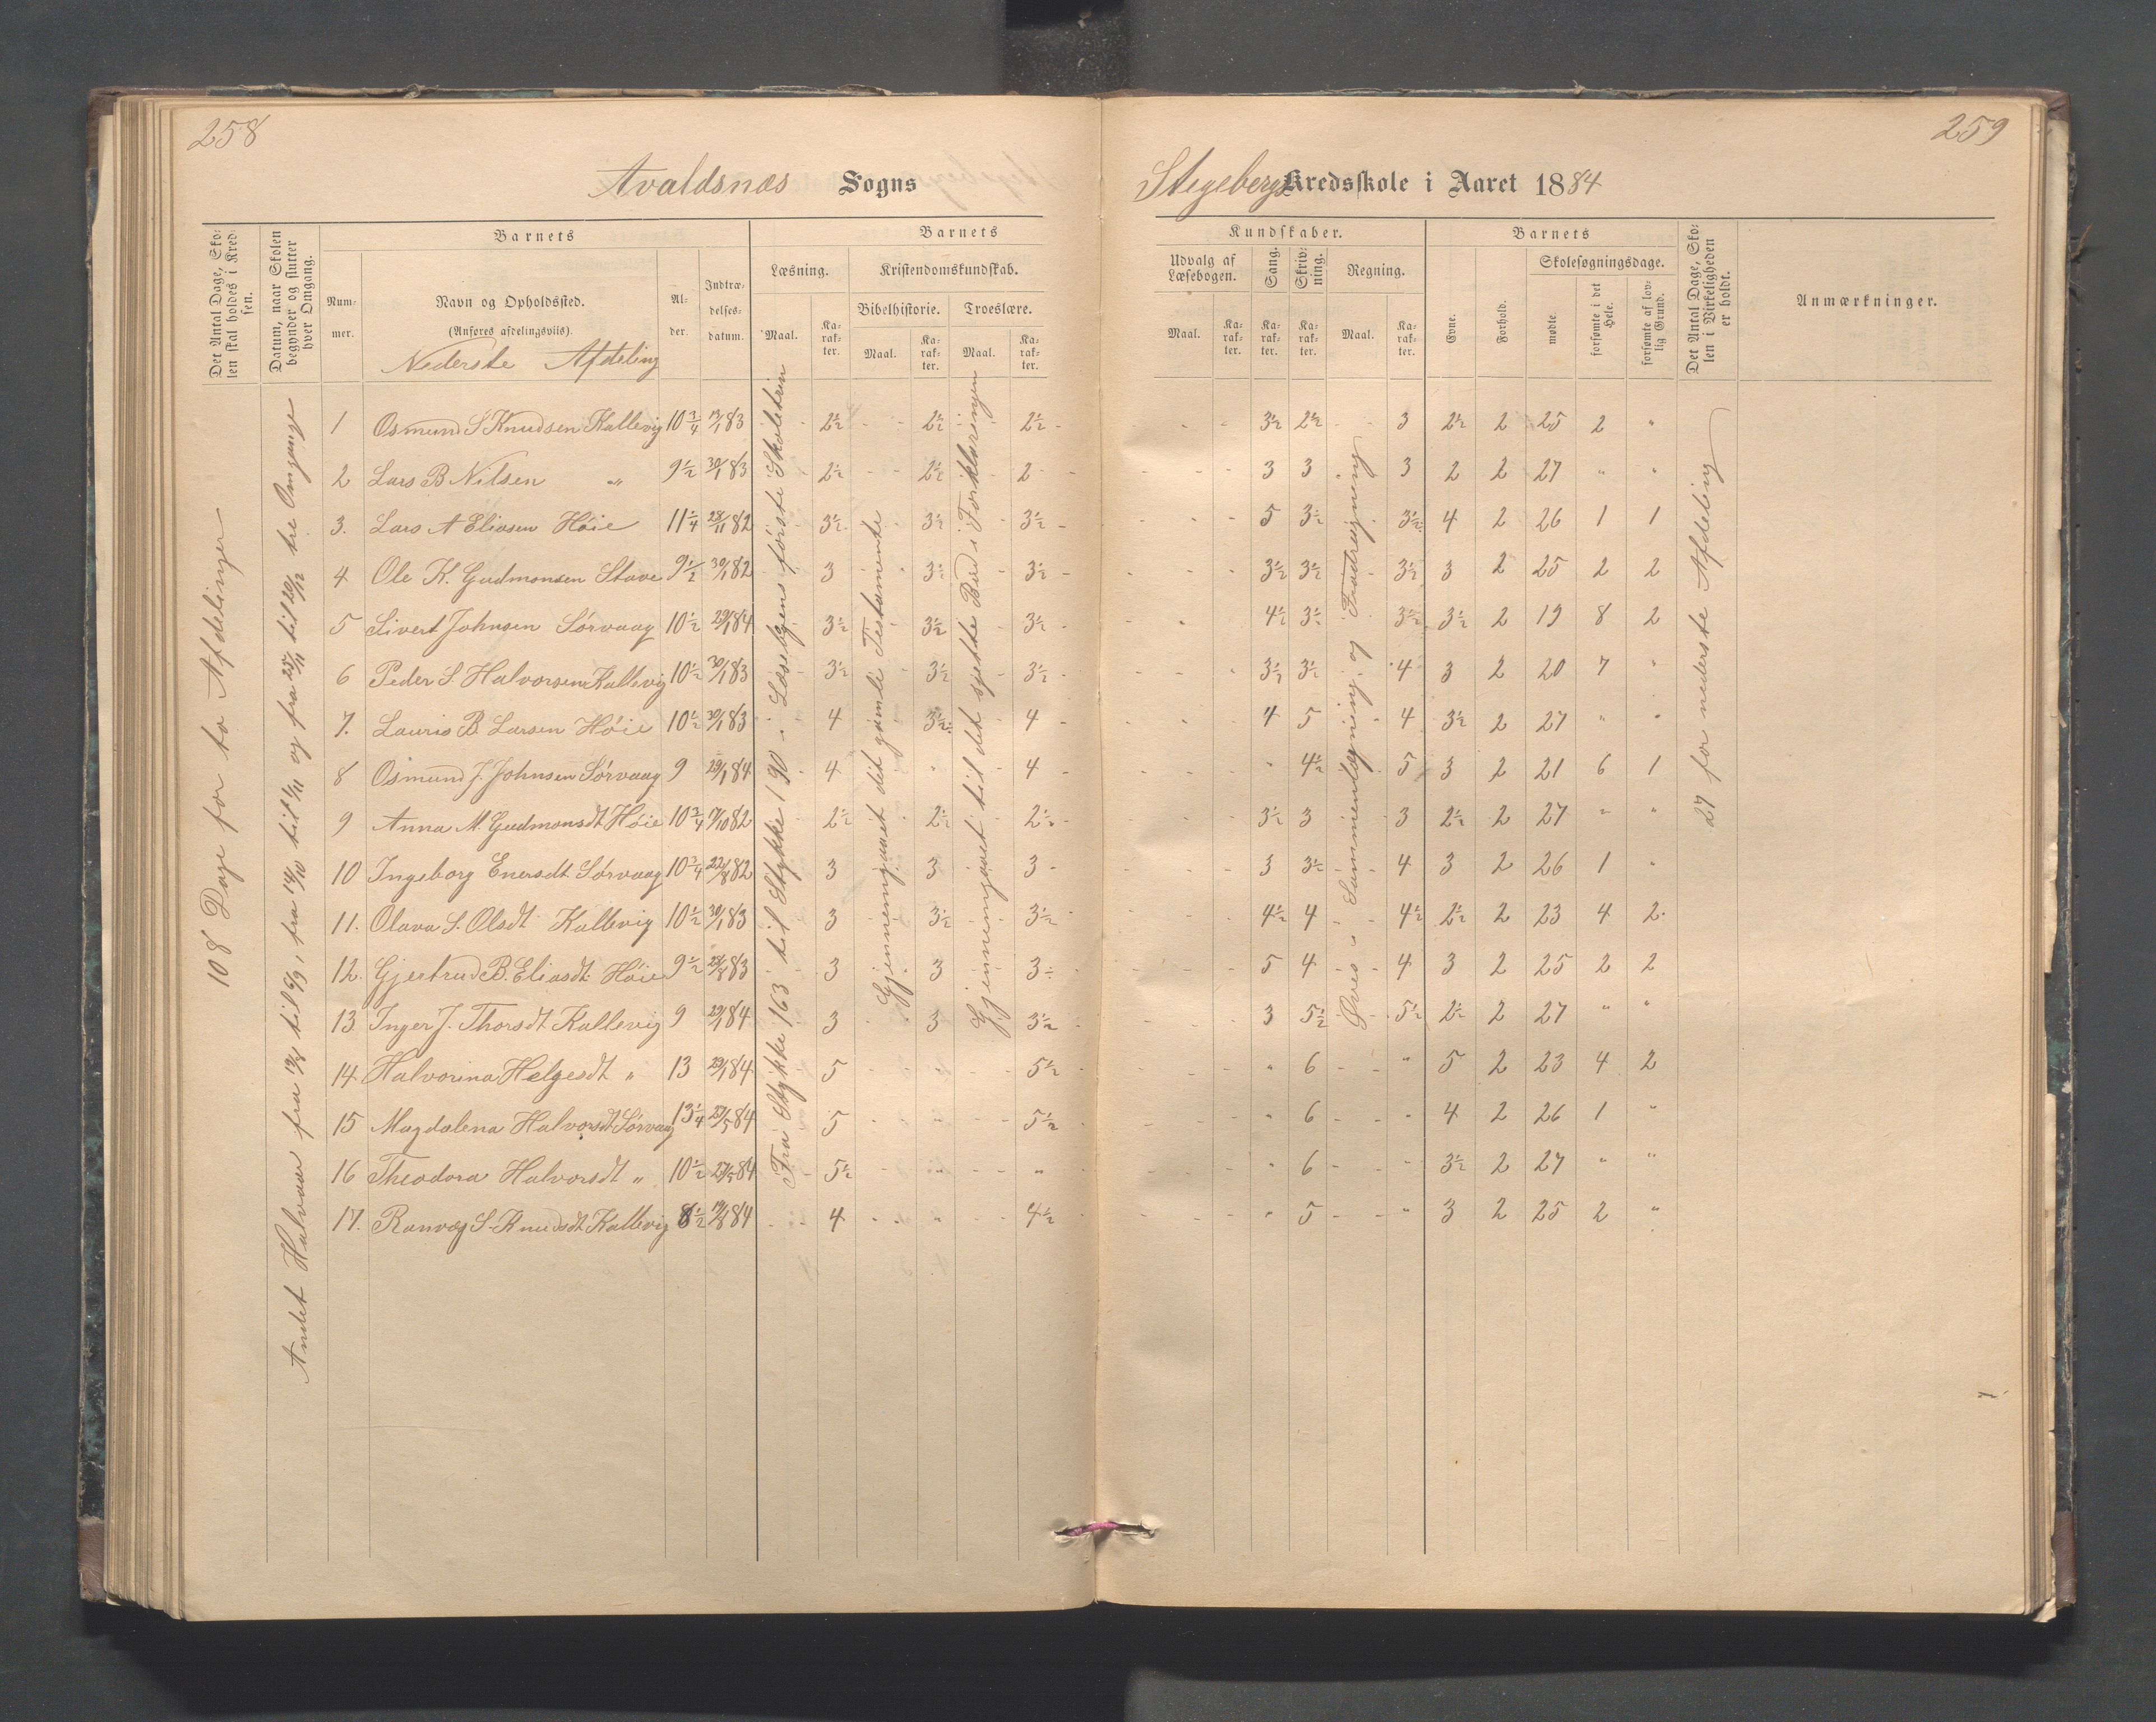 258
259
Avaldsnæs Sogns
Stegebergs Kredsskole i Aaret 1884
Det Antal Dage, Sko-
len skal holdes i Kred-
sen.
Datum, naar Skolen
begynder og slutter
hver Omgang.
Barnets
Num-
mer.
Navn og Opholdssted.
(Anføres afdelingsviis).
Nederste Afdeling
Al-
der.
Indtræ-
delses-
datum.
Barnets
Læsning.
Maal.
Ka-
rak-
ter.
Kristendomskundskab.
Bibelhistorie.
Maal.
Ka-
rak-
ter.
Troeslære.
Maal.
Ka-
rak-
ter.
Kundskaber.
Udvalg af
Læsebogen.
Maal.
Ka-
rak-
ter.
Sang.
Ka-
rak-
ter.
Skriv-
ning.
Ka-
rak-
ter.
Regning.
Maal.
Ka-
rak-
ter.
Barnets
Evne.
Forhold.
Skolesøgningsdage.
mødte.
forsømte i det
Hele.
forsømte af lov-
lig Grund.
Det Antal Dage, Sko-
len i Virkeligheden
er holdt.
Anmærkninger.
108 Dage for to Afdelinger
Andet Halvaar fra 18/8 til 6/9, fra 14/10 til 1/11 og fra 25/11 til 20/12 tre Omgange
Fra Stykke 163 til Stykke 190 i Læsebogens første Skoletrin
Gjennemgaaet det gamle Testamente
Gjennemgaaet til det sjette Bud i Forklaringen
Øves i Sammenlægning og Fradragning
27 for nederste Afdeling
1 Osmund S Knudsen Kallevig 10 3/4 /83 2½ 2½ 2½ 3½ 2½ 3 2½ 2 25 2 "
2 Lars B Nilsen " 9½ 30/1 83 2½ 2½ 2 3 3 3 2 2 27 " "
3. Lars A Eliasen Høie 11¼ 28/11 82 3½ 3½ 3½ 5 3½ 3½ 4 2 26 1 1
4 Ole K. Gudmonsen Stave 9½ 30/1 82 3 3½ 3½ 3½ 3½ 3½ 3 2 25 2 2
5 Sivert Johnsen Sørvaag 10½ 29/1 84 3½ 3½ 3½ 4½ 3½ 3½ 3½ 2 19 8 2
6 Peder S. Halvorsen Kallevig 10½ 30/1 83 3½ 3½ 3½ 3½ 3½ 4 3 2 20 7 "
7. Lauris B. Larsen Høie 10½ 30/1 83 4 3½ 4 4 5 4 3½ 2 27 " "
8 Osmund J. Johnsen Sørvaag 9 29/1 84 4 " 4 " 4½ 5 3 2 21 6 1
9 Anna M. Gudmonsdt Høie 10 3/4 /10 82 2½ 2½ 2½ 3½ 3 3 2½ 2 27 " "
10 Ingeborg Enersdt Sørvaag 10 3/4 22/8 82 3 3 3 3 3½ 4 3 2 26 1 "
11. Olava S. Olsdt Kallevig 10½ 30/1 83 3 3½ 3½ 4½ 4 4½ 2½ 2 23 4 2
12. Gjertrud B. Eliasdt. Høie 9½ 83 3 3 3½ 5 4 4 3 2 25 2 2
13 Inger J. Thorsdt Kallevig 9 29/1 84 3 3 3½ 3 5½ 5½ 2½ 2 27 " "
14. Halvorina Helgesdt " 13 29/1 84 5 " 5½ " 6 " 5 2 23 4 2
15 Magdalena Halvorsdt Sørvaag 13¼ 27/5 84 5 " 5½ " 6 " 4 2 26 1 "
16 Theodora Halvorsdt " 10½ 27/5 84 5½ " " " 6 " 3½ 2 27 " "
17. Ranvæg S. Knudsdt Kallevig 8½ 19/8 84 4 " 4½ " 5 " 3 2 25 2 "